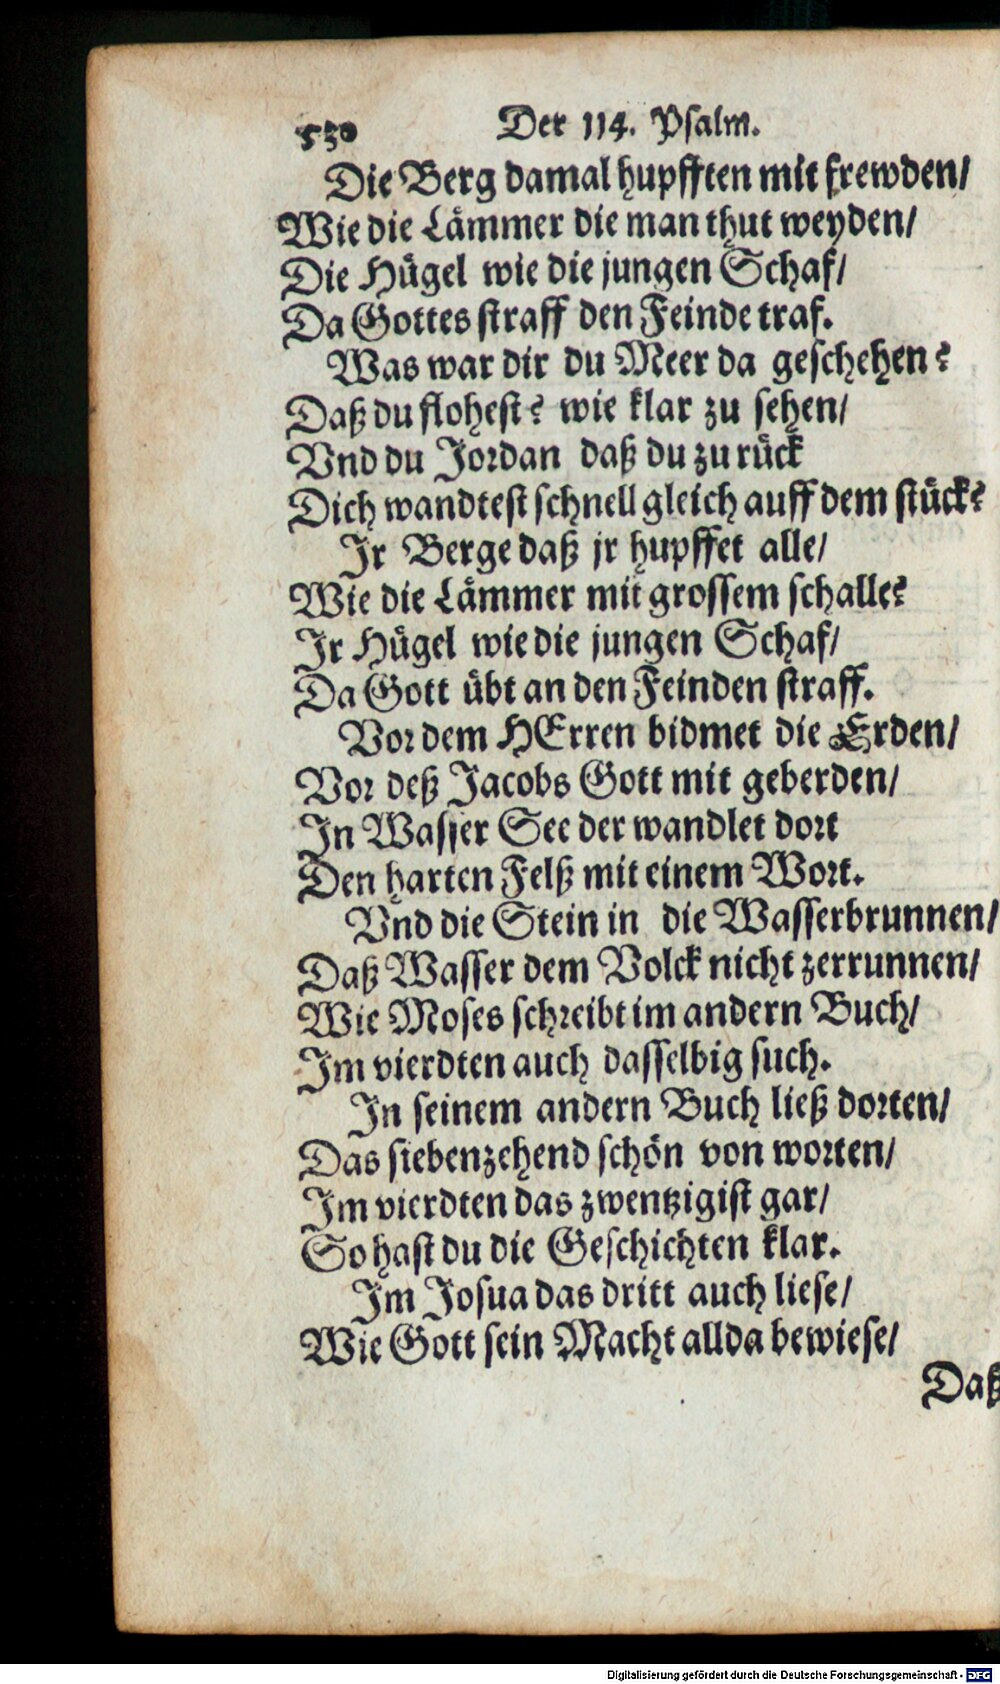 530 Der 114. Psalm.
Die Berg damal hupfften mit frewden/
Wie die Lämmer die man thut weyden/
Die Hügel wie die jungen Schaf/
Da Gottes straff den Feinde traf.
Was war dir du Meer da geschehen?
Daß du flohest? wie klar zu sehen/
Vnd du Jordan daß du zu rück
Dich wandtest schnell gleich auff dem stück?
Ir Berge daß jr hupffet alle/
Wie die Lämmer mit grossem schalle?
Ir Hügel wie die jungen Schaf/
Da Gott übt an den Feinden straff.
Vor dem HErren bidmet die Erden/
Vor deß Jacobs Gott mit geberden/
In Wasser See der wandlet dort
Den harten Felß mit einem Wort.
Vnd die Stein in die Wasserbrunnen/
Daß Wasser dem Volck nicht zerrunnen/
Wie Moses schreibt im andern Buch/
Im vierdten auch dasselbig such.
In seinem andern Buch ließ dorten/
Das siebenzehend schön von worten/
Im vierdten das zwentzigist gar/
So hast du die Geschichten klar.
Im Josua das dritt auch liese/
Wie Gott sein Macht allda bewiese/
Daß
Digitalisierung gefördert durch die Deutsche Forschungsgemeinschaft - DFG